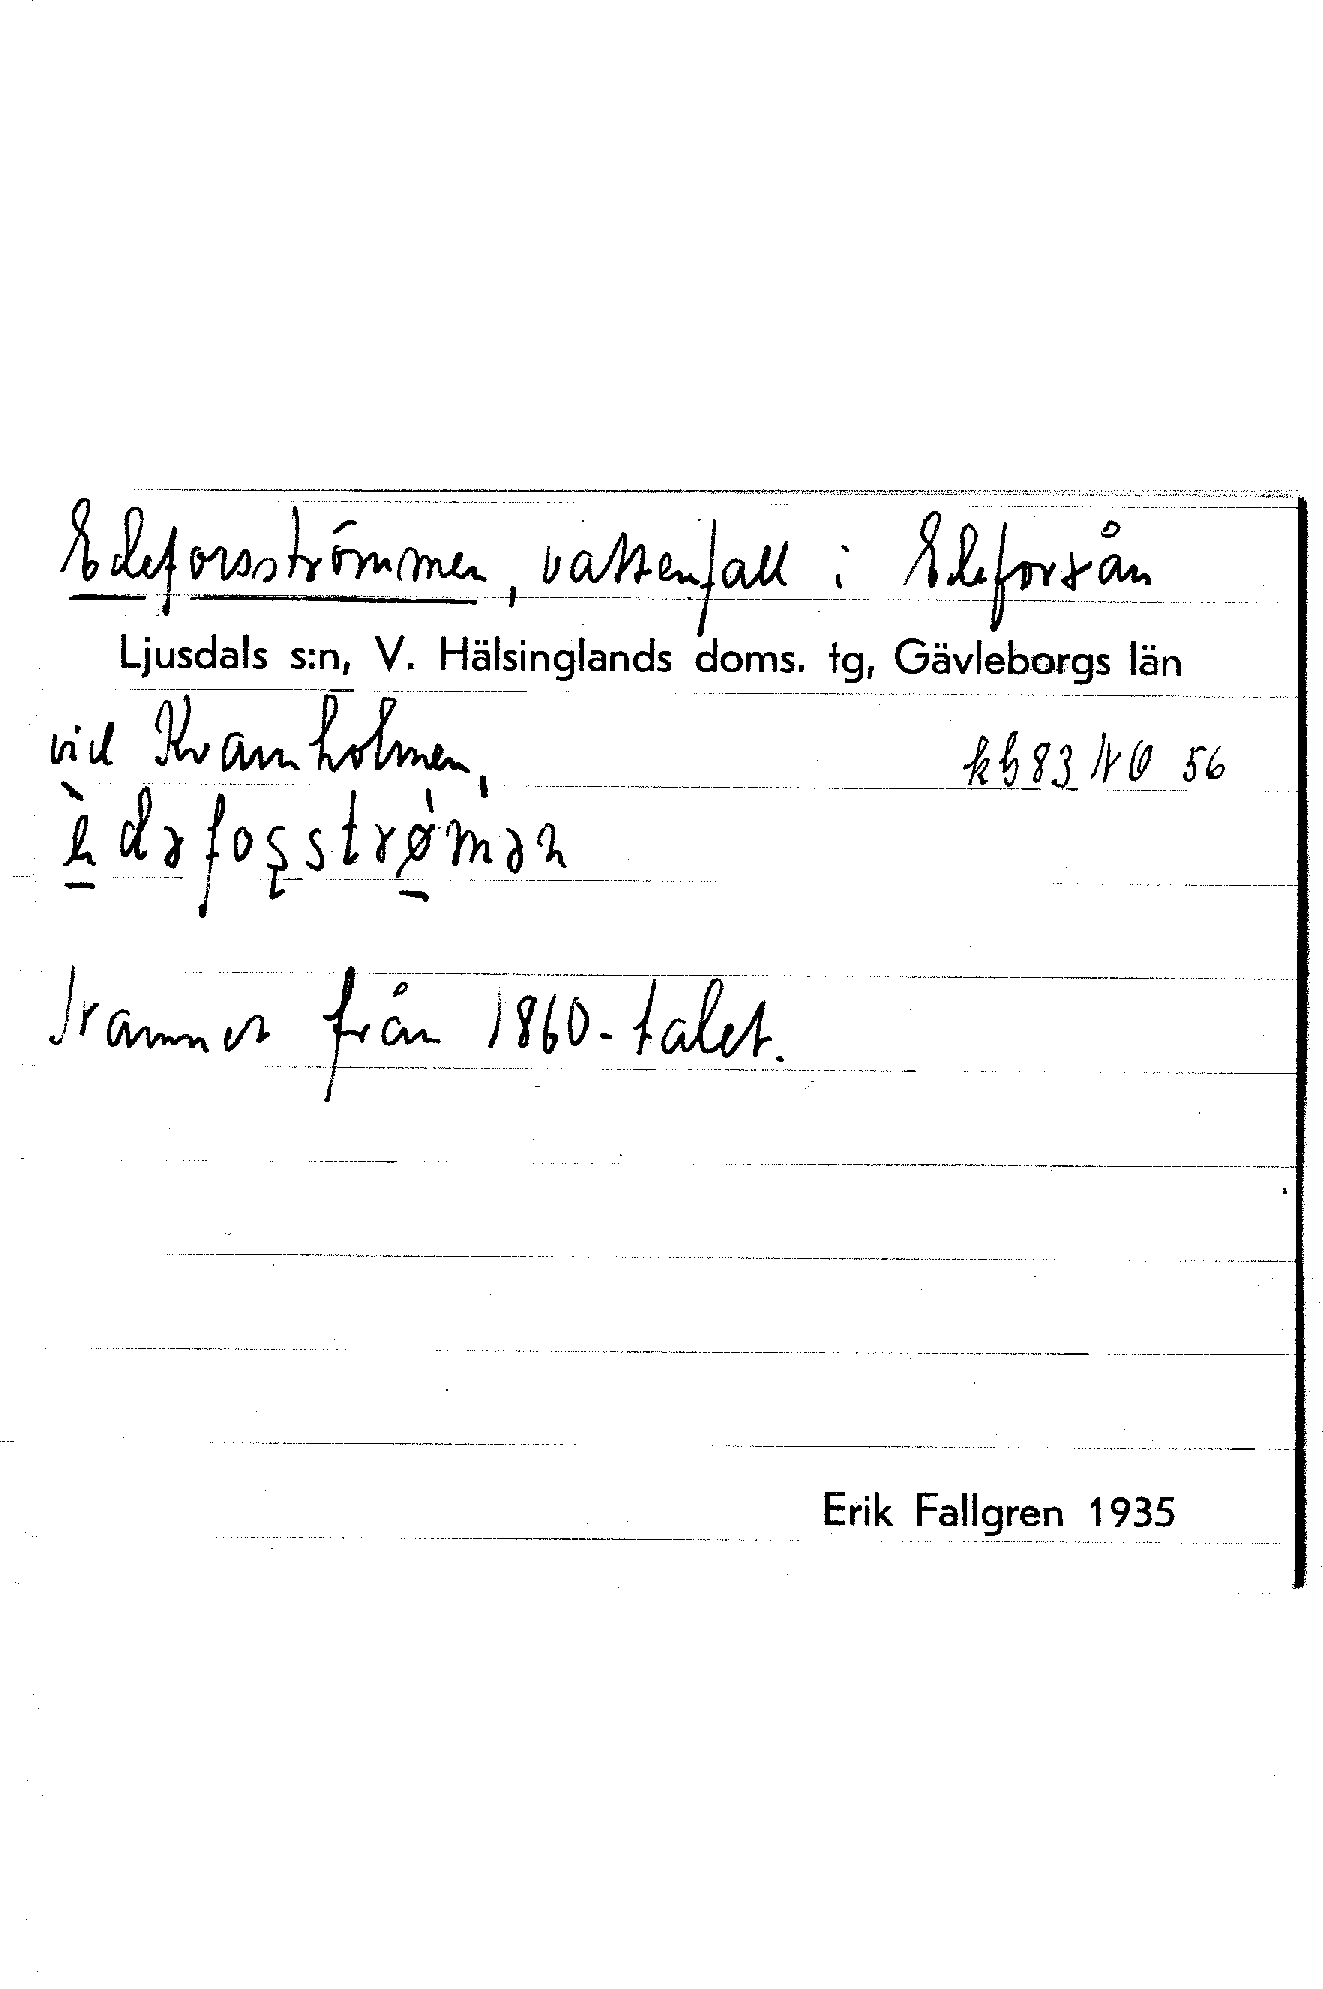 Edeforsströmmen, vattenfall i Edeforsån
Ljusdals s:n, V. Hälsinglands doms. tg, Gävleborgs län
vid Kvarnholmen,
kb 83 NO 56
èdəfos̨strø̀mən
Namnet från 1860-talet.
Erik Fallgren 1935